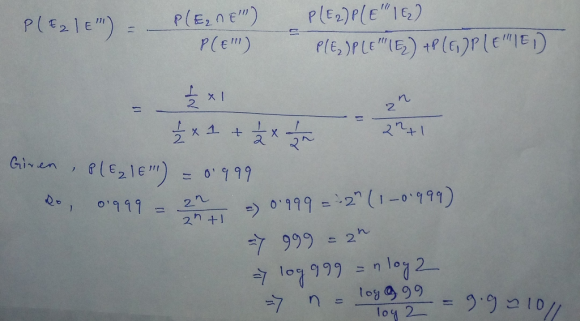 P(E₂|E''') = P(E₂∩E''') / P(E''') = P(E₂)P(E'''|E₂) / P(E₂)P(E'''|E₂)+P(E₁)P(E'''|E1)
= ½ ×1 / ½ × 1 + ½ × 1/2ⁿ = 2ⁿ / 2ⁿ+1
Given, P(E₂|E''') = 0.999
So, 0.999 = 2ⁿ / 2ⁿ+1 ⇒ 0.999 = 2ⁿ(1-0.999)
⇒ 999 = 2ⁿ
⇒ log 999 = n log 2
⇒ n = log 999 / log 2 = 9.9 ≃ 10//